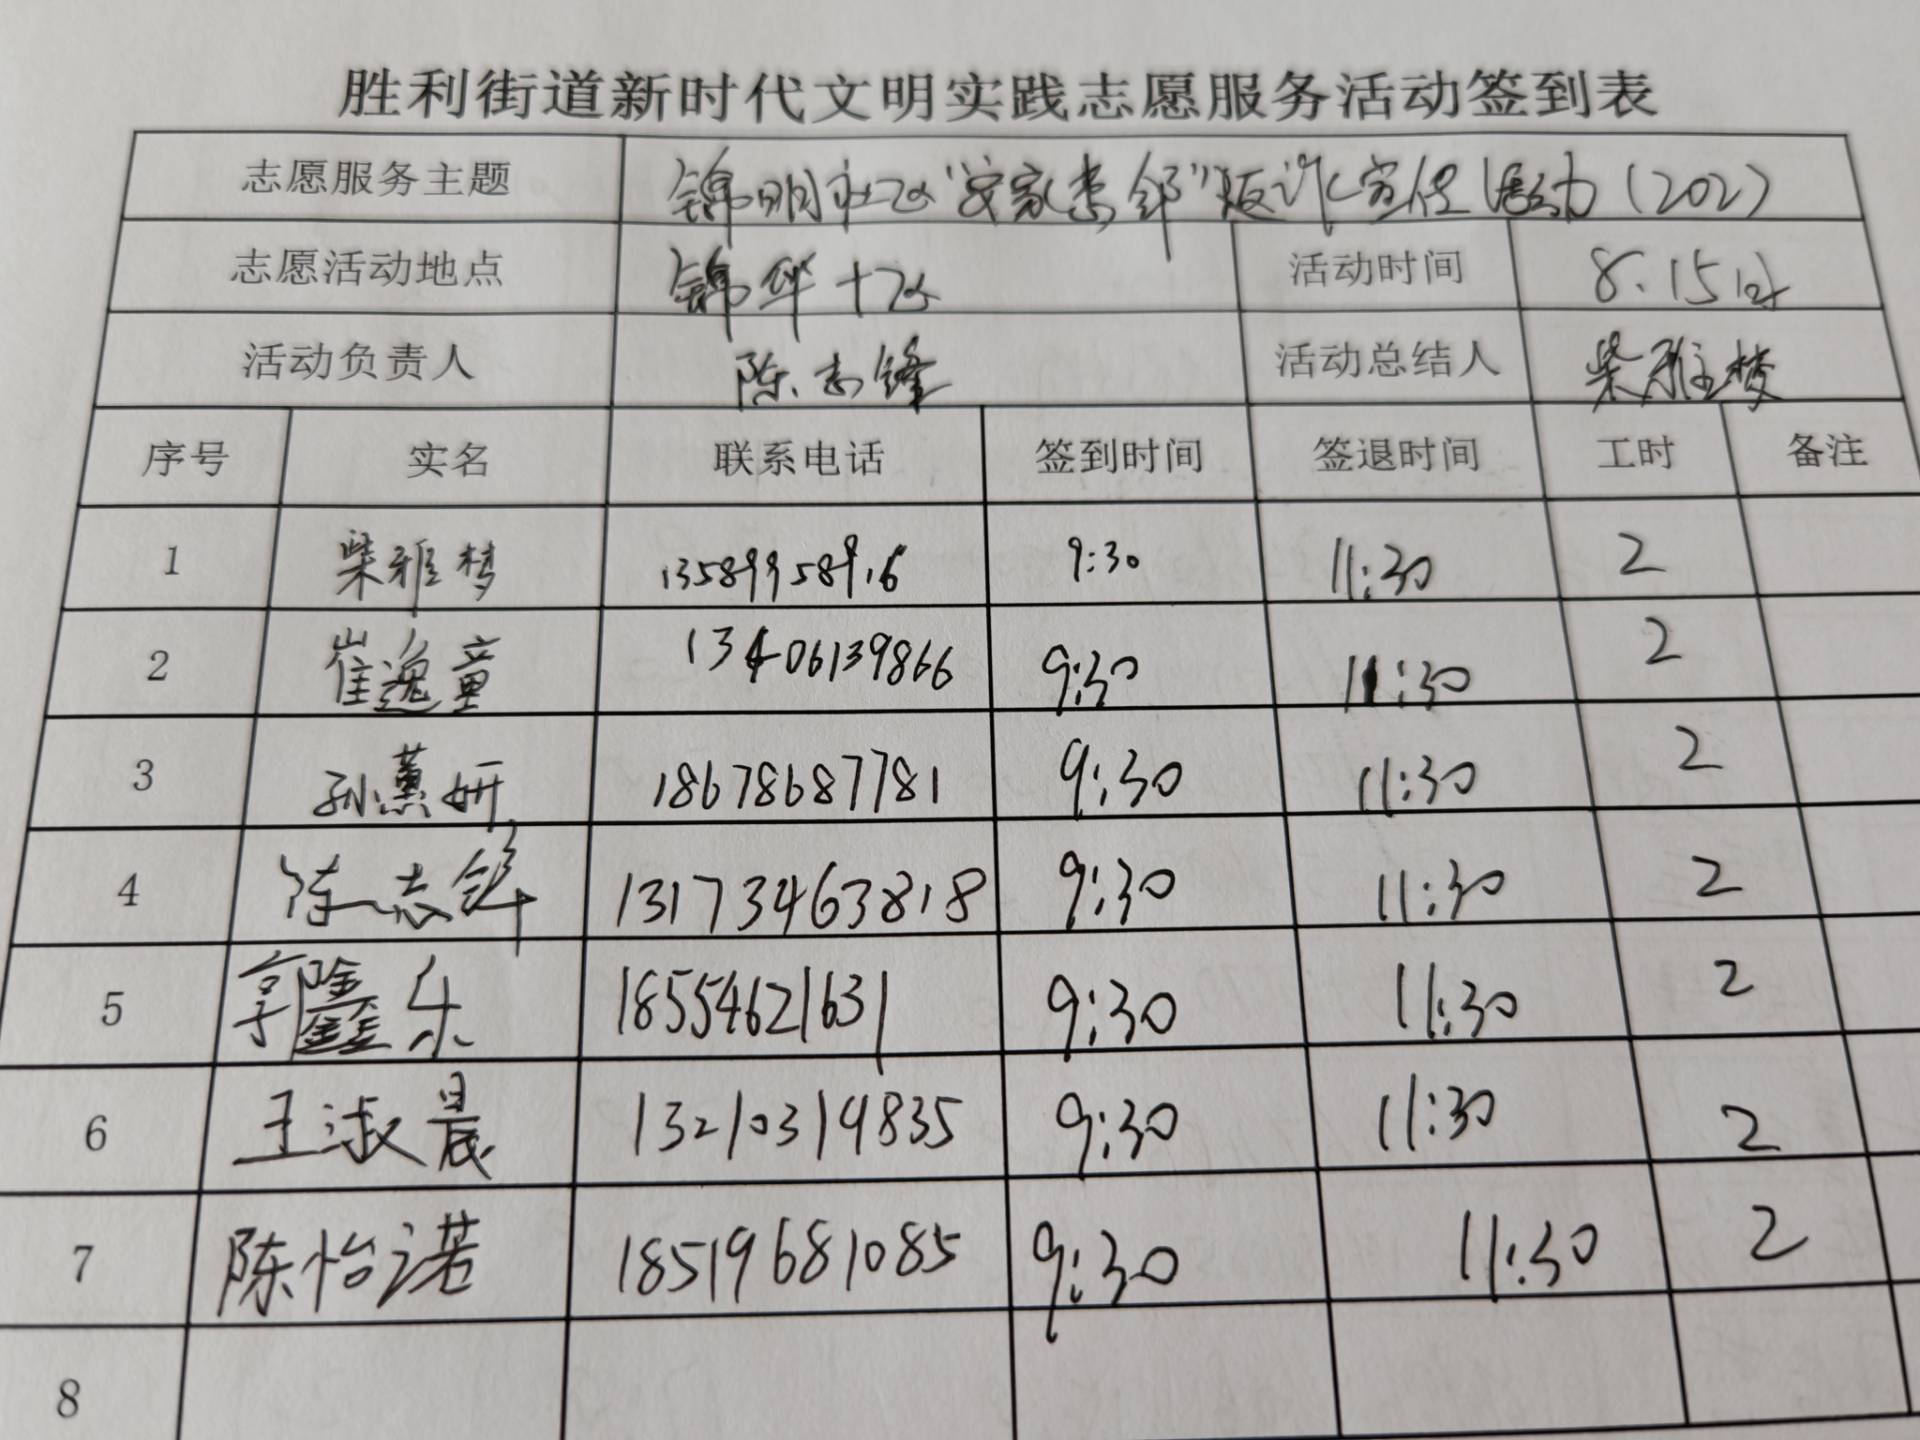 胜利街道新时代文明实践志愿服务活动签到表
志愿服务主题 锦明社区"安家李邹"反诈宣传活动(202)
志愿活动地点 锦华十区 活动时间 8.15日
活动负责人 陈志锋 活动总结人 柴雅梦
序号 实名 联系电话 签到时间 签退时间 工时 备注
1 柴雅梦 13589958916 9:30 11:30 2
2 崔逸童 13406139866 9:30 11:30 2
3 孙蕙妍 18678687781 9:30 11:30 2
4 陈志锋 13173463818 9:30 11:30 2
5 郭鑫乐 18554621631 9:30 11:30 2
6 王淑晨 13210319835 9:30 11:30 2
7 陈怡诺 18519681085 9:30 11:30 2
8